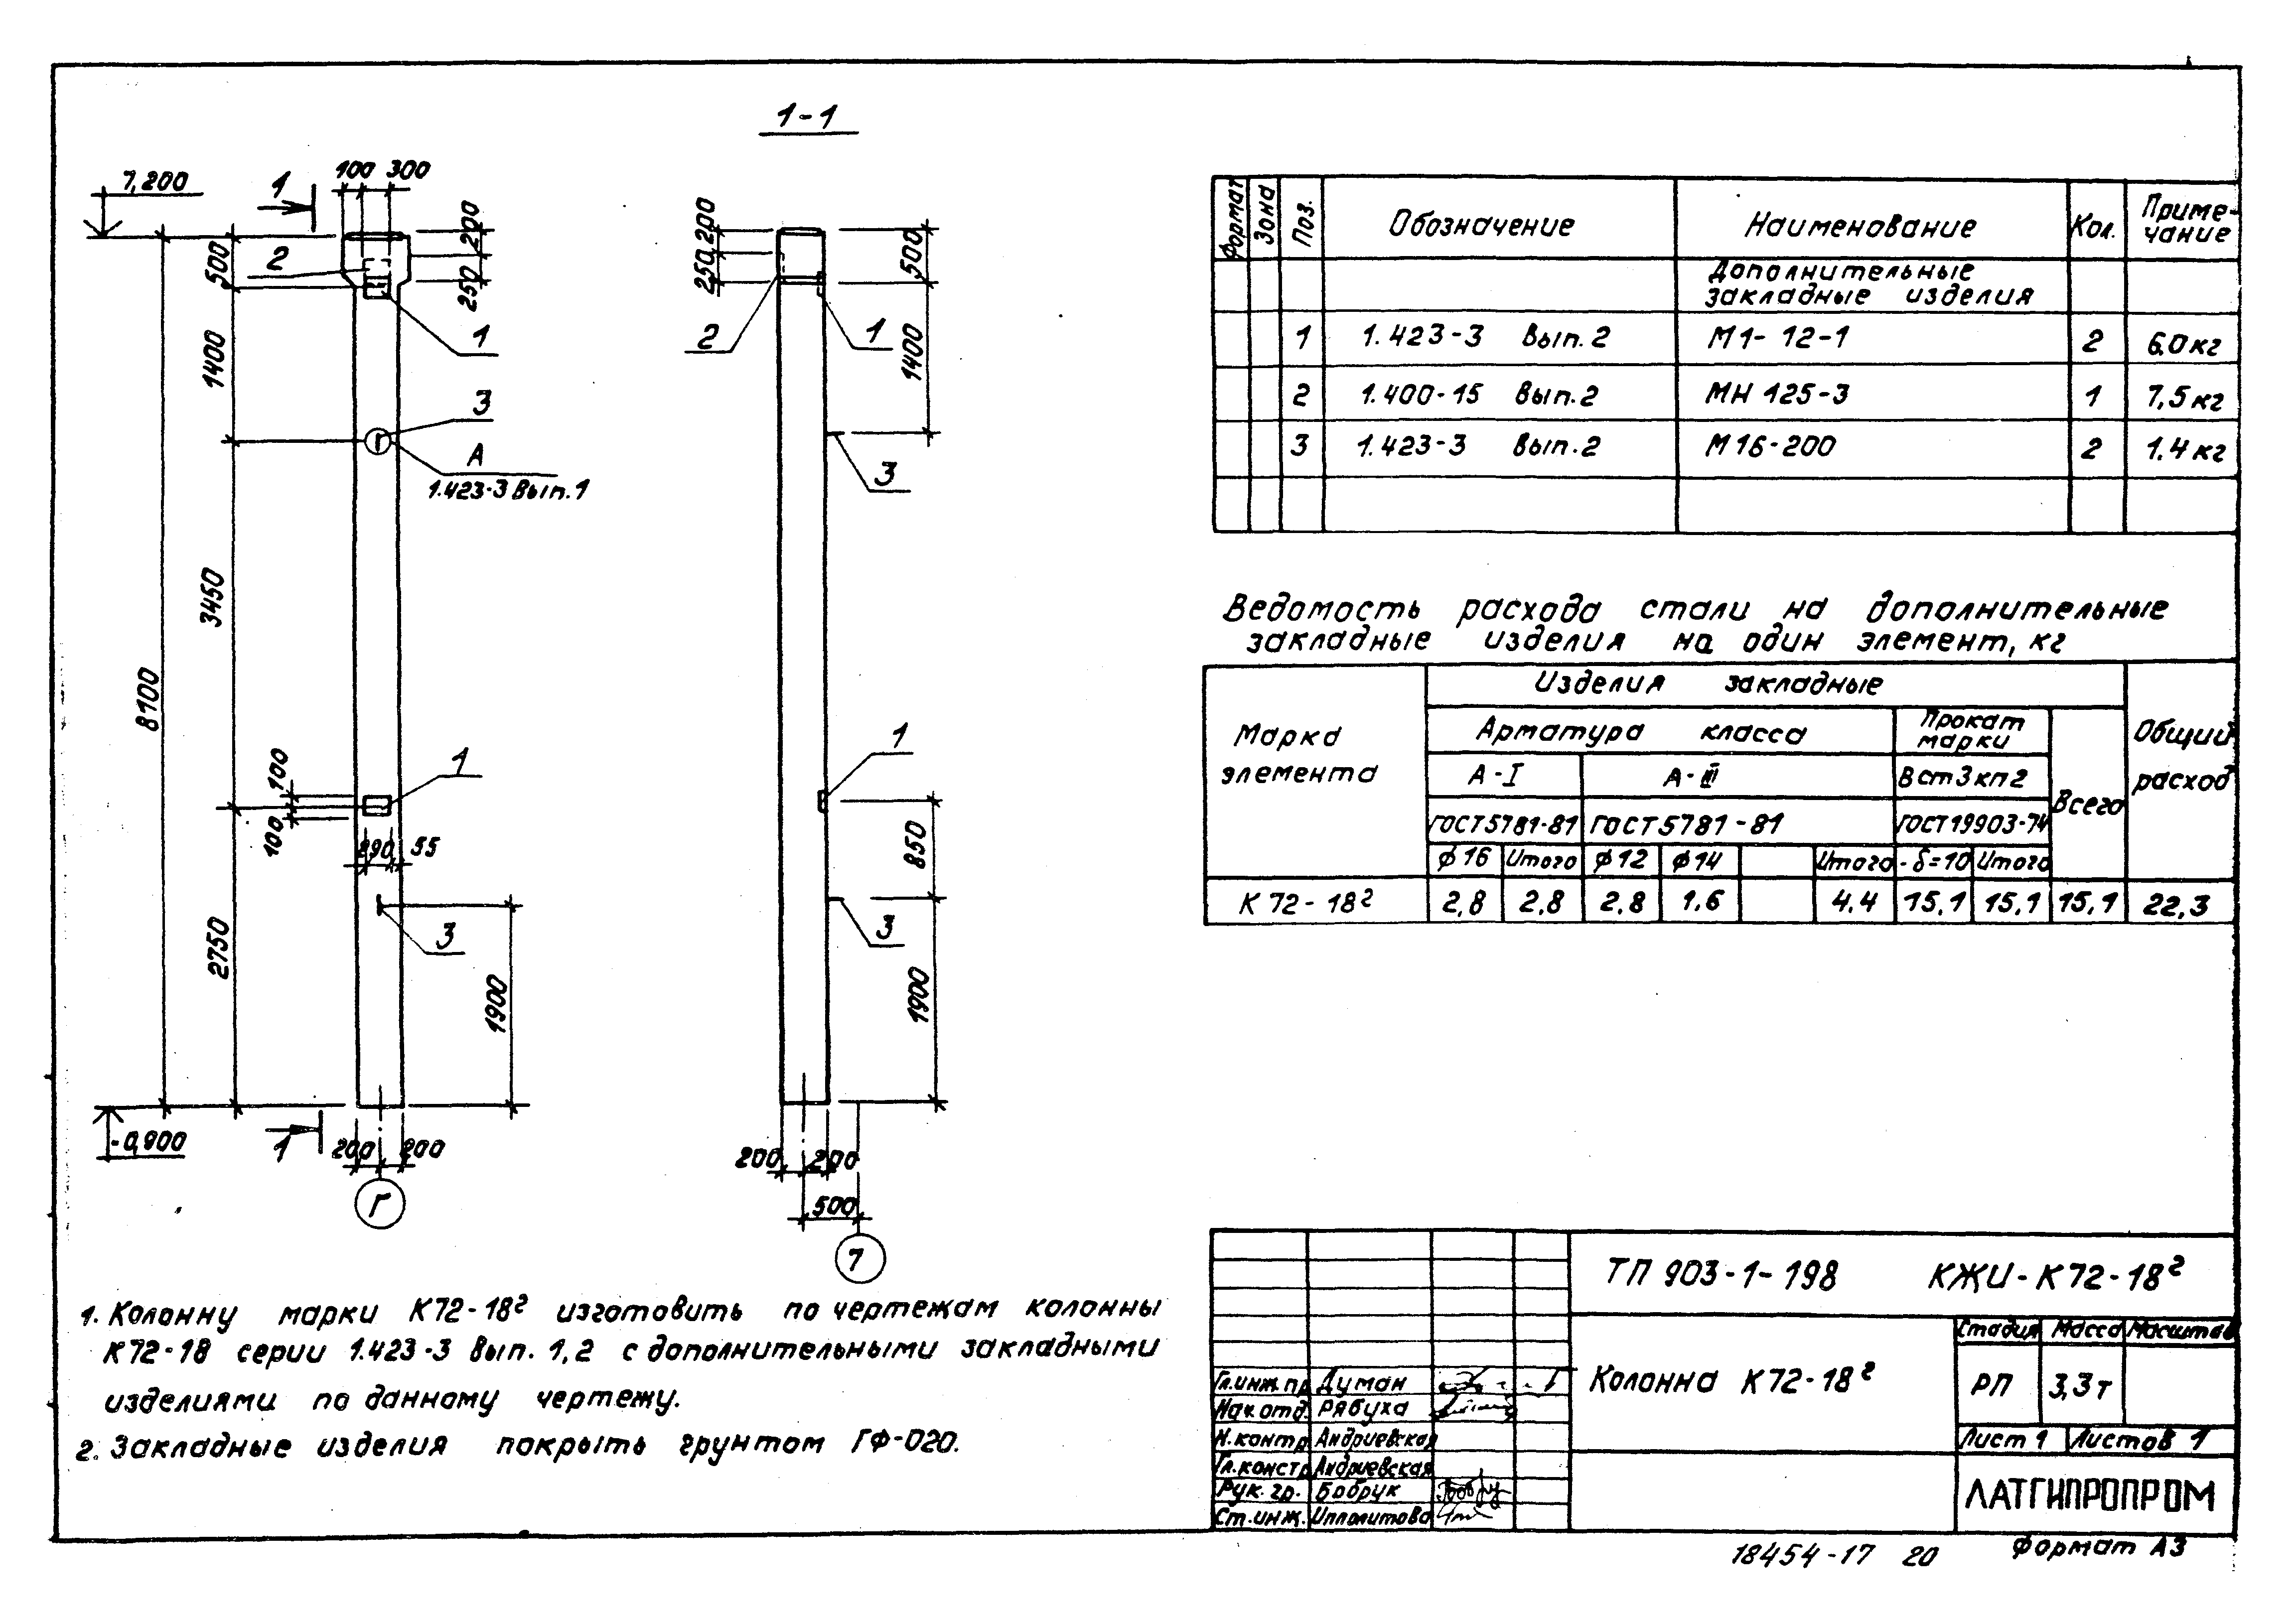 1-1
7,200
1
100 300
500
200
250
2
1
1400
3
А
1.423-3 Вып.1
3450
8100
100
100
1
290 55
3
2750
1900
-0,900
1
200 200
Г
200
250
500
2
1
1400
3
1
850
3
1900
200 200
500
7
1. Колонну марки К72-18² изготовить по чертежам колонны
К72-18 серии 1.423-3 Вып. 1,2 с дополнительными закладными
изделиями по данному чертежу.
2. Закладные изделия покрыть грунтом ГФ-020.
Формат Зона Поз. Обозначение Наименование Кол. Приме-
чание
Дополнительные
закладные изделия
1 1.423-3 Вып.2 М1-12-1 2 6.0 кг
2 1.400-15 Вып.2 МН 125-3 1 7,5 кг
3 1.423-3 Вып.2 М16-200 2 1.4 кг
Ведомость расхода стали на дополнительные
закладные изделия на один элемент, кг
Марка
элемента
Изделия закладные
Общий
расход
Арматура класса
Прокат
марки
Всего
А-I А-III В ст3 кп2
ГОСТ5781-81 ГОСТ5781-81 ГОСТ19903-74
ф16 Итого ф12 ф14 Итого -δ=10 Итого
К 72-18² 2,8 2,8 2,8 1,6 4,4 15,1 15,1 15,1 22,3
ТП 903-1-198 КЖИ-К72-18²
Колонна К72-18²
Стадия Масса Масштаб
РП 3,3т
Лист 1 Листов 1
ЛАТГИПРОПРОМ
Гл.инж.пр Думан
Нач.отд. Рябуха
Н.контр Андриевская
Гл.констр Андриевская
Рук. гр. Бобрук
Ст.инж. Ипполитова
18454-17 20
Формат А3